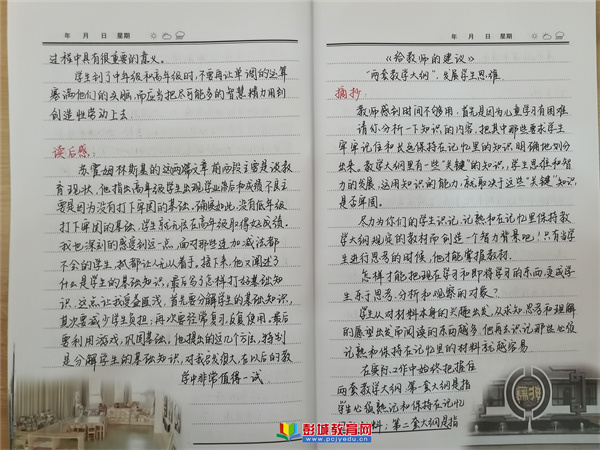 年 月 日 星期
过程中具有很重要的意义。
学生到了中年级和高年级时,不要再让单调的运算
塞满他们的头脑,而应当把尽可能多的智慧精力用到
创造性劳动上去
读后感:
苏霍姆林斯基的这两篇文章前两段主要是谈教
育现状,他指出高年级学生出现学业落后和成绩不良主
要是因为没有打下牢固的基础。确实如此,没有低年级
打下牢固的基础,学生就无法在高年级取得好成绩。
我也深刻的感受到这一点,面对那些连加减法都
不会的学生,抓都让人无从着手。接下来,他又阐述了
什么是学生的基础知识,最后写了怎样打好基础知
识,这点让我受益匪浅,首先要分解学生的基础知识,
其次要减少学生负担;再次要经常复习,反复使用。最后
要利用游戏,巩固基础,他提出的这几个方法,特别
是分解学生的基础知识,对我启发很大,在以后的教
学中非常值得一试.
年 月 日 星期
《给教师的建议》
“两套教学大纲”,发展学生思维
摘抄:
教师感到时间不够用,首先是因为儿童学习有困难
请你分析一下知识的内容,把其中那些要求学生
牢牢记住和长远保持在记忆里的知识明确地划分
出来。教学大纲里有一些“关键”的知识,学生思维和智
力的发展,运用知识的能力,就取决于这些“关键”知识
是否牢固。
尽力为你们的学生识记、记熟和在记忆里保持教
学大纲规定的教材而创造一个智力背景吧!只有当学
生进行思考的时候,他才能掌握教材.
怎样才能把现在学习和即将学习的东西,变成学
生乐于思考、分析和观察的对象?
学生从对材料本身的兴趣出发,从求知、思考和理解
的愿望出发而阅读的东西越多,他再去识记那些必须
记熟和保持在记忆里的材料就越容易
在实际工作中始终把握住
两套教学大纲:第一套大纲是指
学生必须熟记和保持在记忆
料;第二套大纲是指
彭城教育网
www.pcjyedu.cn